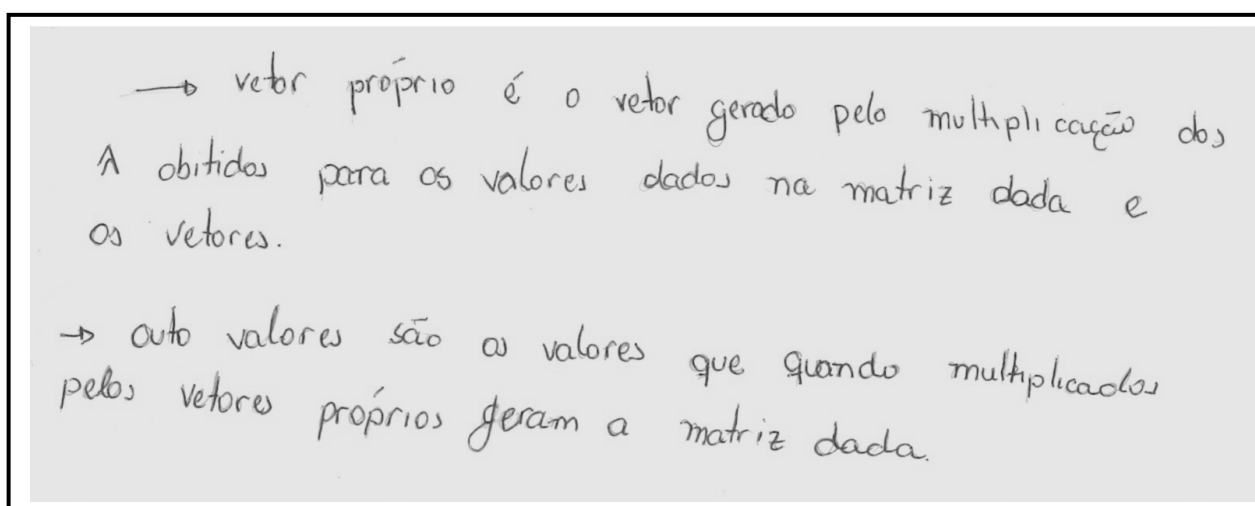 → vetor próprio é o vetor gerado pelo multiplicação dos
λ obitidos para os valores dados na matriz dada e
os vetores.
→ auto valores são os valores que quando multiplicados
pelos vetores próprios geram a matriz dada.